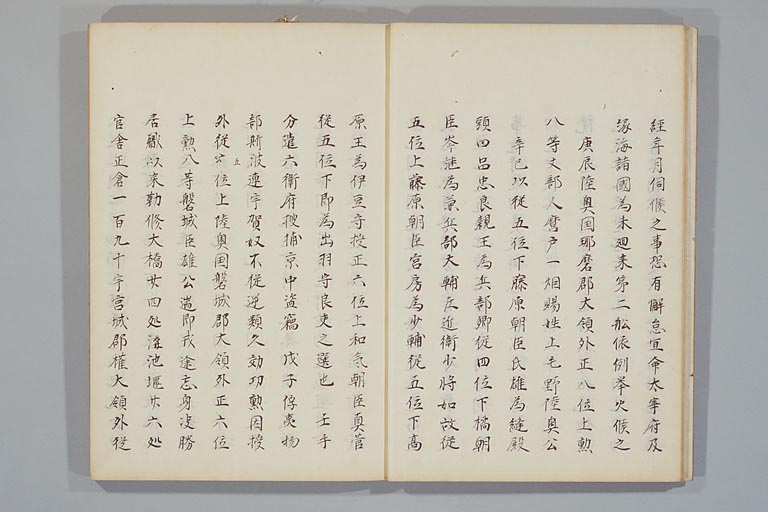 經年月伺候之事恐有懈怠宜命太宰府及
縁海諸國為未廻来第二舩依例挙火候之
庚辰陸奥国耶磨郡大領外正八位上勲
八等丈部人麿戸一烟賜姓上毛野陸奥公
辛巳以従五位下藤原朝臣氏雄為縫殿
頭四品忠良親王為兵部卿従四位下橘朝
臣岑継為兼兵部大輔左近衛少将如故従
五位上藤原朝臣宮房為少輔従五位下高
原王為伊豆守授正六位上和気朝臣真菅
従五位下即為出羽守良吏之選也壬午
分遣六衛府捜捕京中盗竊戊子俘夷物
部斯波連宇賀奴不従逆類久効功勲因授
外従六位上陸奥国磐城郡大領外正六位
五
上勲八等磐城臣雄公遄即戎途忘身决勝
居職以来勤修大橋廿四処溝池堰廿六処
官舎正倉一百九十宇宮城郡權大領外従